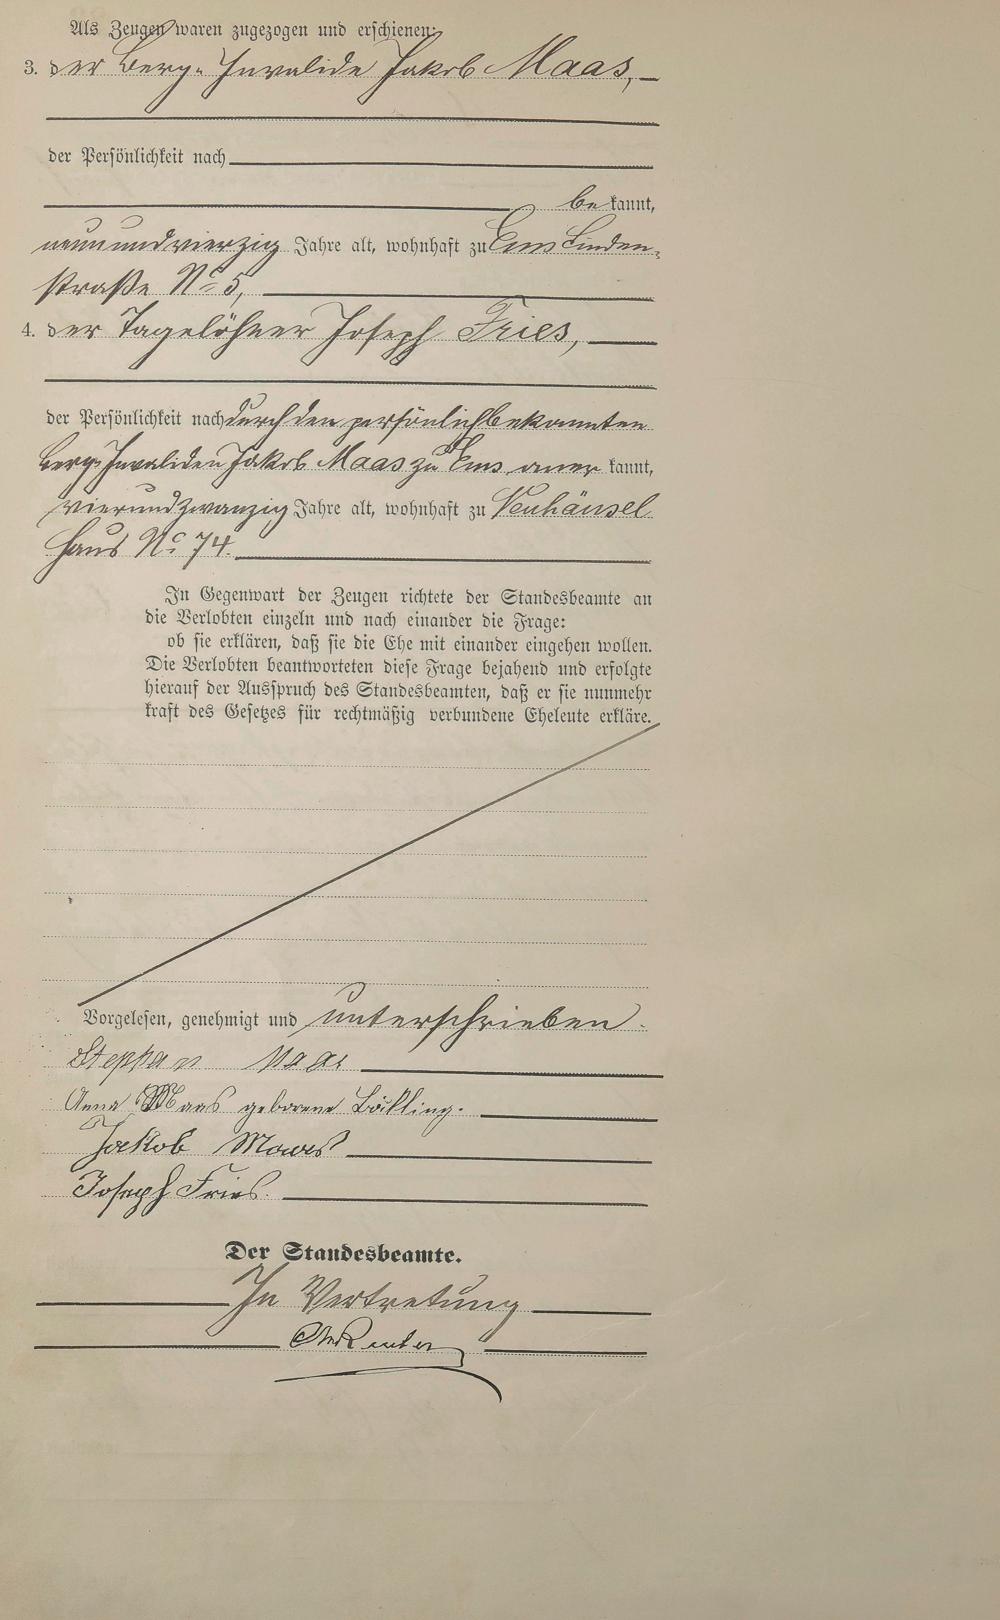 Als Zeugen waren zugezogen und erschienen:
3. der Berg-Invalide Jakob Maas,
der Persönlichkeit nach
be kannt,
neunundvierzig Jahre alt, wohnhaft zu Ems Linden-
straße No 5,
4. der Tagelöhner Joseph Fries,
der Persönlichkeit nach durch den persönlich bekannten
Berg-Invaliden Jakob Maas zu Ems aner kannt,
vierundzwanzig Jahre alt, wohnhaft zu Neuhäusel
Haus No 74.
In Gegenwart der Zeugen richtete der Standesbeamte an
die Verlobten einzeln und nach einander die Frage:
ob sie erklären, daß sie die Ehe mit einander eingehen wollen.
Die Verlobten beantworteten diese Frage bejahend und erfolgte
hierauf der Ausspruch des Standesbeamten, daß er sie nunmehr
kraft des Gesetzes für rechtmäßig verbundene Eheleute erkläre.
Vorgelesen, genehmigt und unterschrieben.
Stephan Maas
Anna Maas geborene Bökling.
Jakob Maas
Joseph Fries.
Der Standesbeamte.
In Vertretung